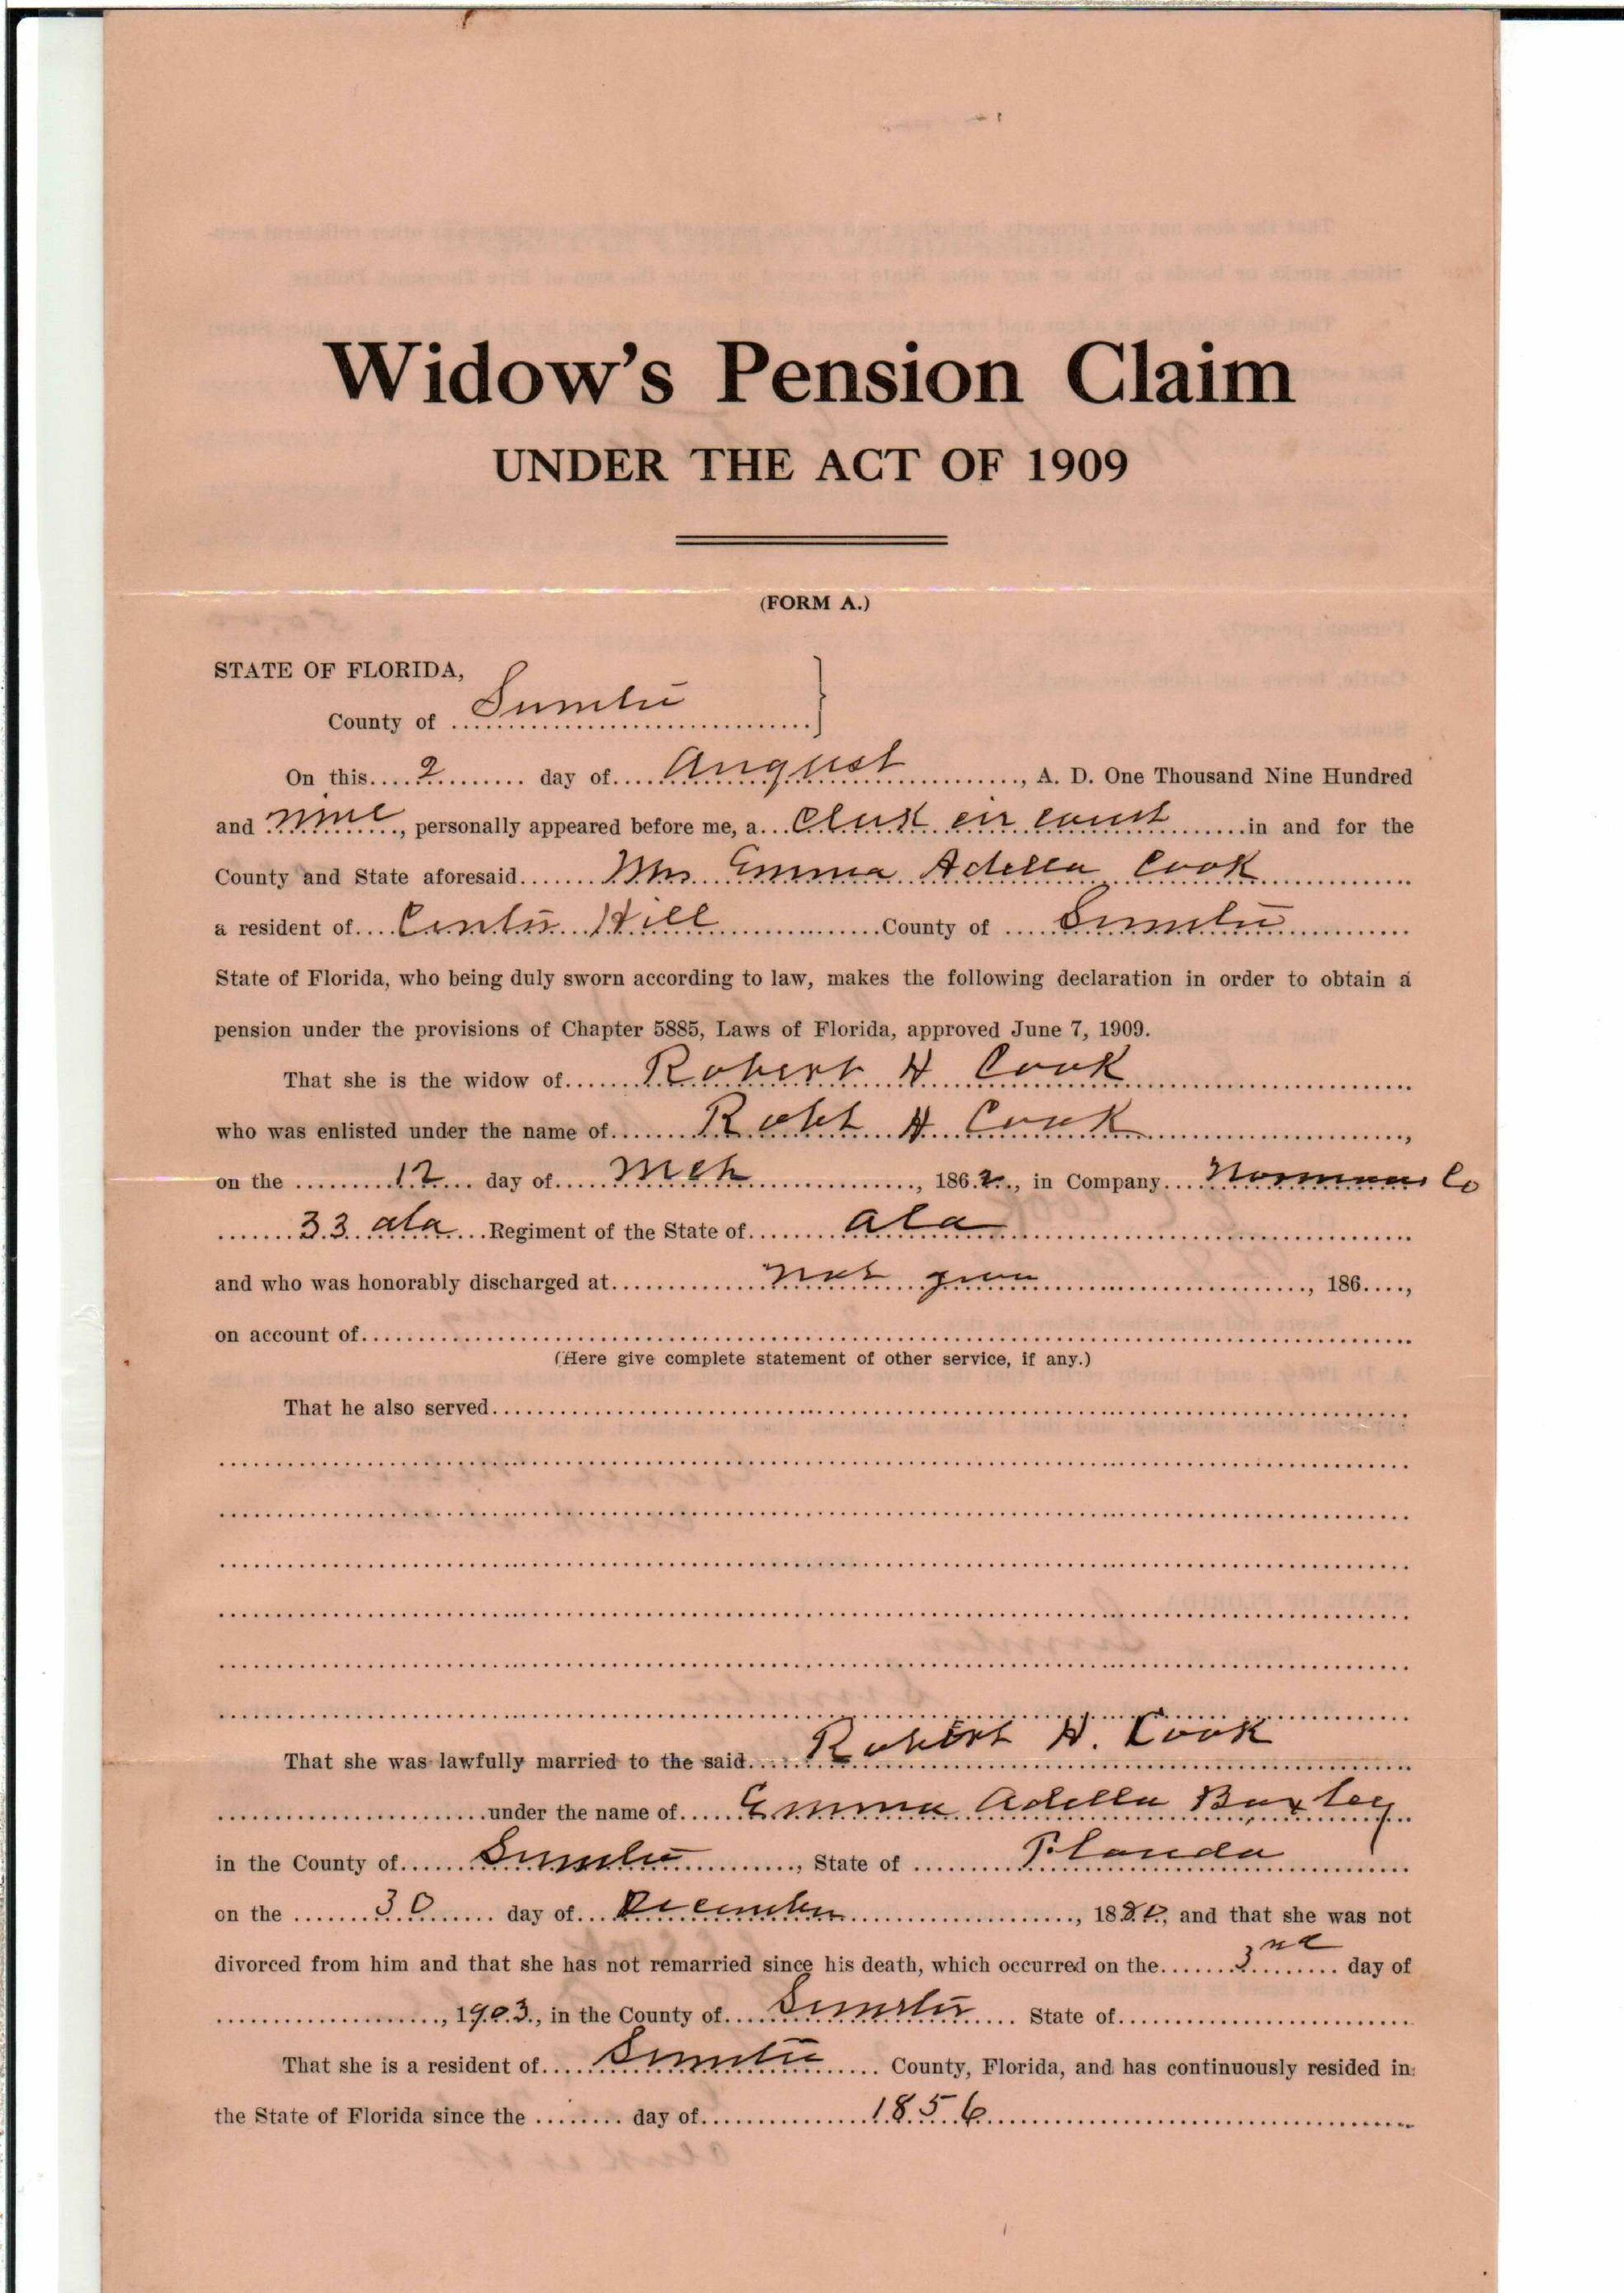 Widow's Pension Claim
UNDER THE ACT OF 1909
(FORM A.)
STATE OF FLORIDA,
County of Sumter
On this 2 day of August, A. D. One Thousand Nine Hundred
and nine, personally appeared before me, a Clerk cir court in and for the
County and State aforesaid Mrs Emma Adella Cook
a resident of Center Hill County of Sumter
State of Florida, who being duly sworn according to law, makes the following declaration in order to obtain a
pension under the provisions of Chapter 5885, Laws of Florida, approved June 7, 1909.
That she is the widow of Robert H Cook
who was enlisted under the name of Robt H Cook,
on the 12 day of Mch, 1862, in Company Normans Co
33 ala Regiment of the State of ala
and who was honorably discharged at not given, 186,
on account of
(Here give complete statement of other service, if any.)
That he also served
That she was lawfully married to the said Robert H. Cook
under the name of Emma Adella Baxley
in the County of Sumter, State of Florida
on the 30 day of December, 1880, and that she was not
divorced from him and that she has not remarried since his death, which occurred on the 3nd day of
, 1903, in the County of Sumter State of
That she is a resident of Sumter County, Florida, and has continuously resided in
the State of Florida since the day of 1856